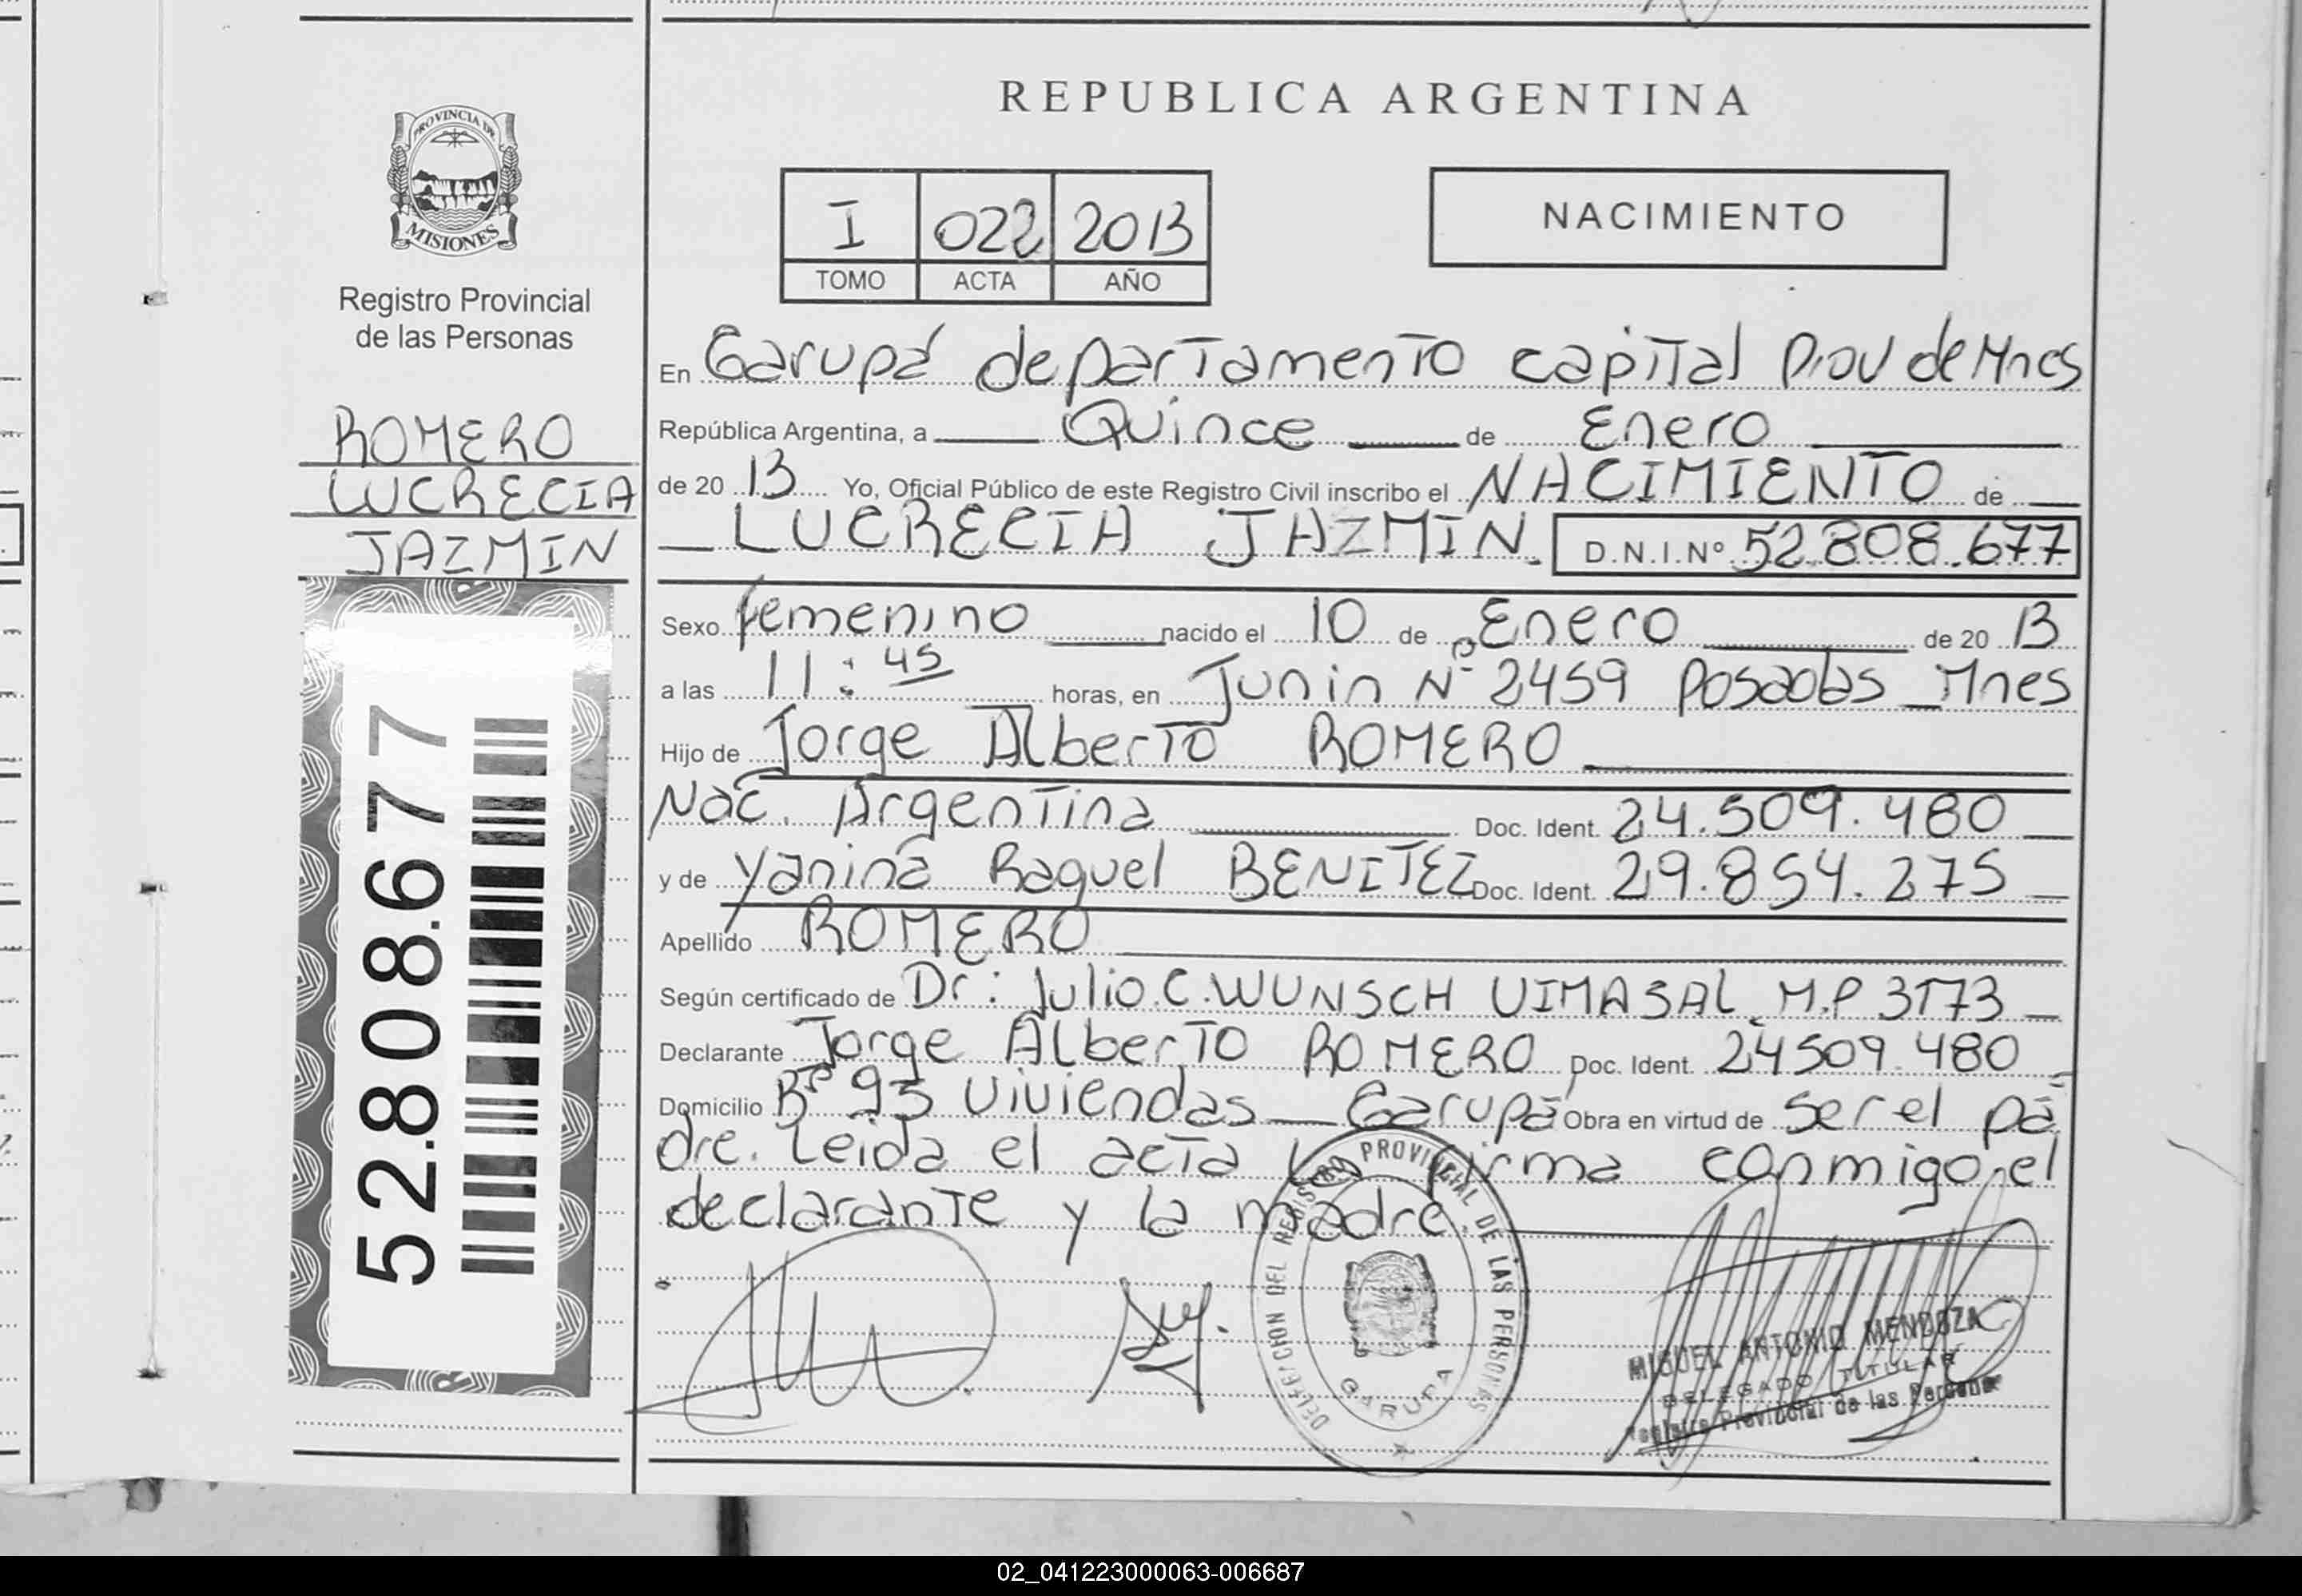 REPUBLICA ARGENTINA
PROVINCIA DE
MISIONES
Registro Provincial
de las Personas
I 022 2013
TOMO ACTA AÑO
NACIMIENTO
ROMERO
LUCRECIA
JAZMIN
52.808.677
En Garupá departamento capital Prov de Mnes
República Argentina, a Quince de Enero
de 20 13 Yo, Oficial Público de este Registro Civil inscribo el NACIMIENTO de
LUCRECIA JAZMIN. D.N.I.Nº 52.808.677
Sexo femenino nacido el 10 de Enero de 20 13
a las 11:45 horas, en Junin Nº 2459 Posadas Mnes
Hijo de Jorge Alberto ROMERO
Nac. Argentina Doc. Ident. 24.509.480
y de Yanina Raquel BENITEZ Doc. Ident. 29.854.275
Apellido ROMERO
Según certificado de Dr: Julio.C.WUNSCH UIMASAL M.P 3173
Declarante Jorge Alberto ROMERO Doc. Ident. 24509.480
Domicilio Bº 93 Viviendas Garupá Obra en virtud de ser el pa
dre. Leida el acta la firma conmigo el
declarante y la madre.
DELEGACION DEL REGISTRO PROVINCIAL DE LAS PERSONAS
GARUPA
MIGUEL ANTONIO MENDOZA
DELEGADO TITULAR
Registro Provincial de las Personas
02_041223000063-006687